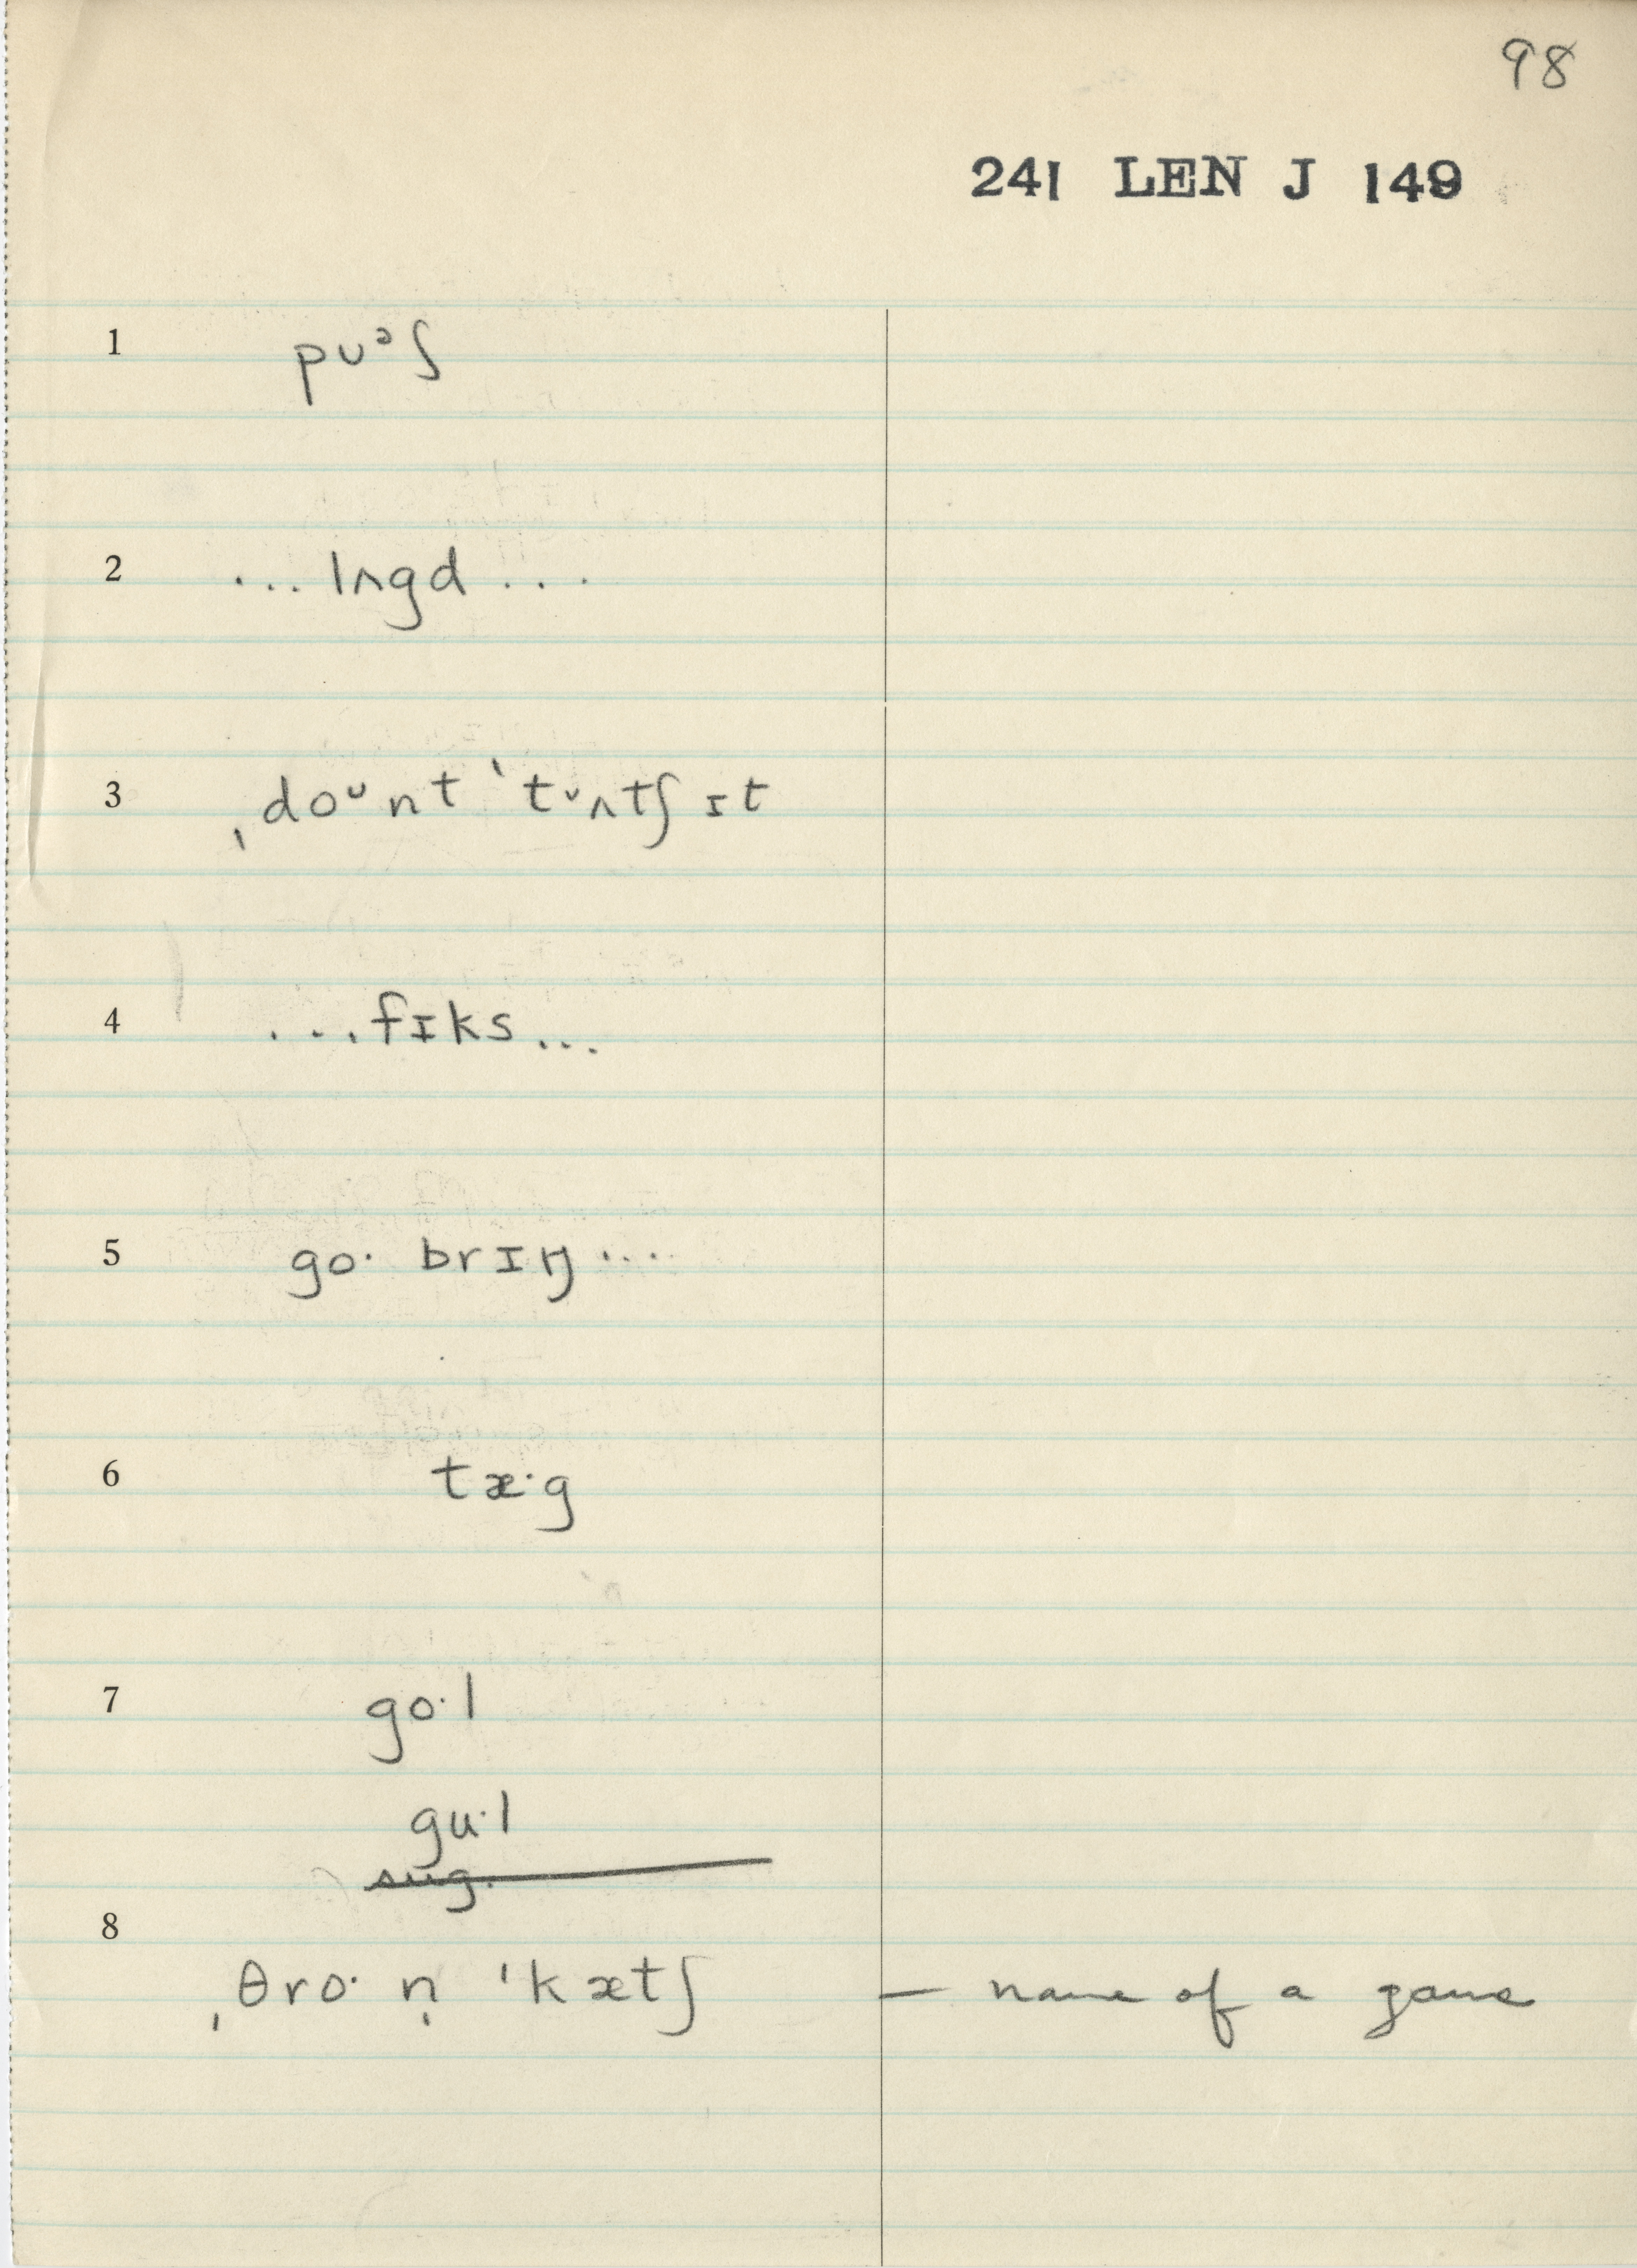 98
241 LEN J 149
1 pᴜᵊʃ
2 ... lʌgd ...
3 ˌdoᵘnt ˈtᵘʌtʃ ɪt
4 ...fɪks...
5 go· brɪŋ ....
6 tæ·g
7 go·l
gu·l
sug.
8
ˌθro· n̩ ˈkætʃ — name of a game